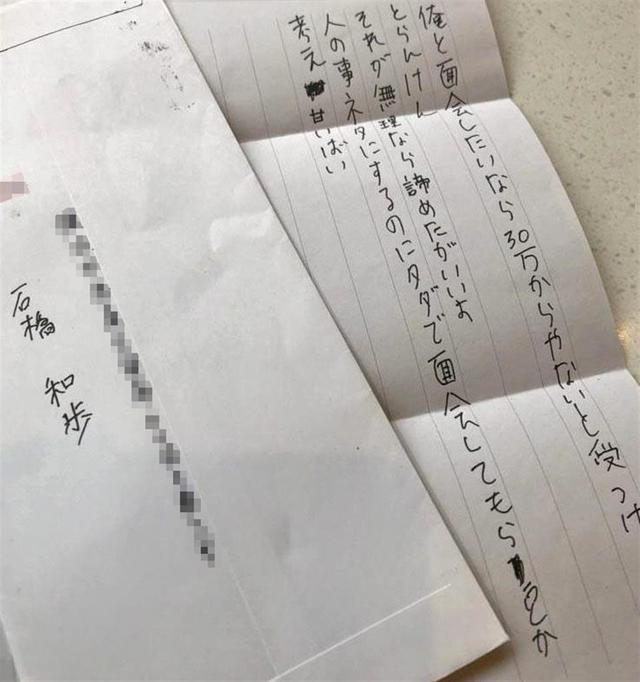 俺と面会したいなら30万からやないと受つけ
とらんけん
それが無理なら諦めたがいいよ
人の事ネタにするのにタダで面会してもらうとか
考え甘いばい
石橋 和歩